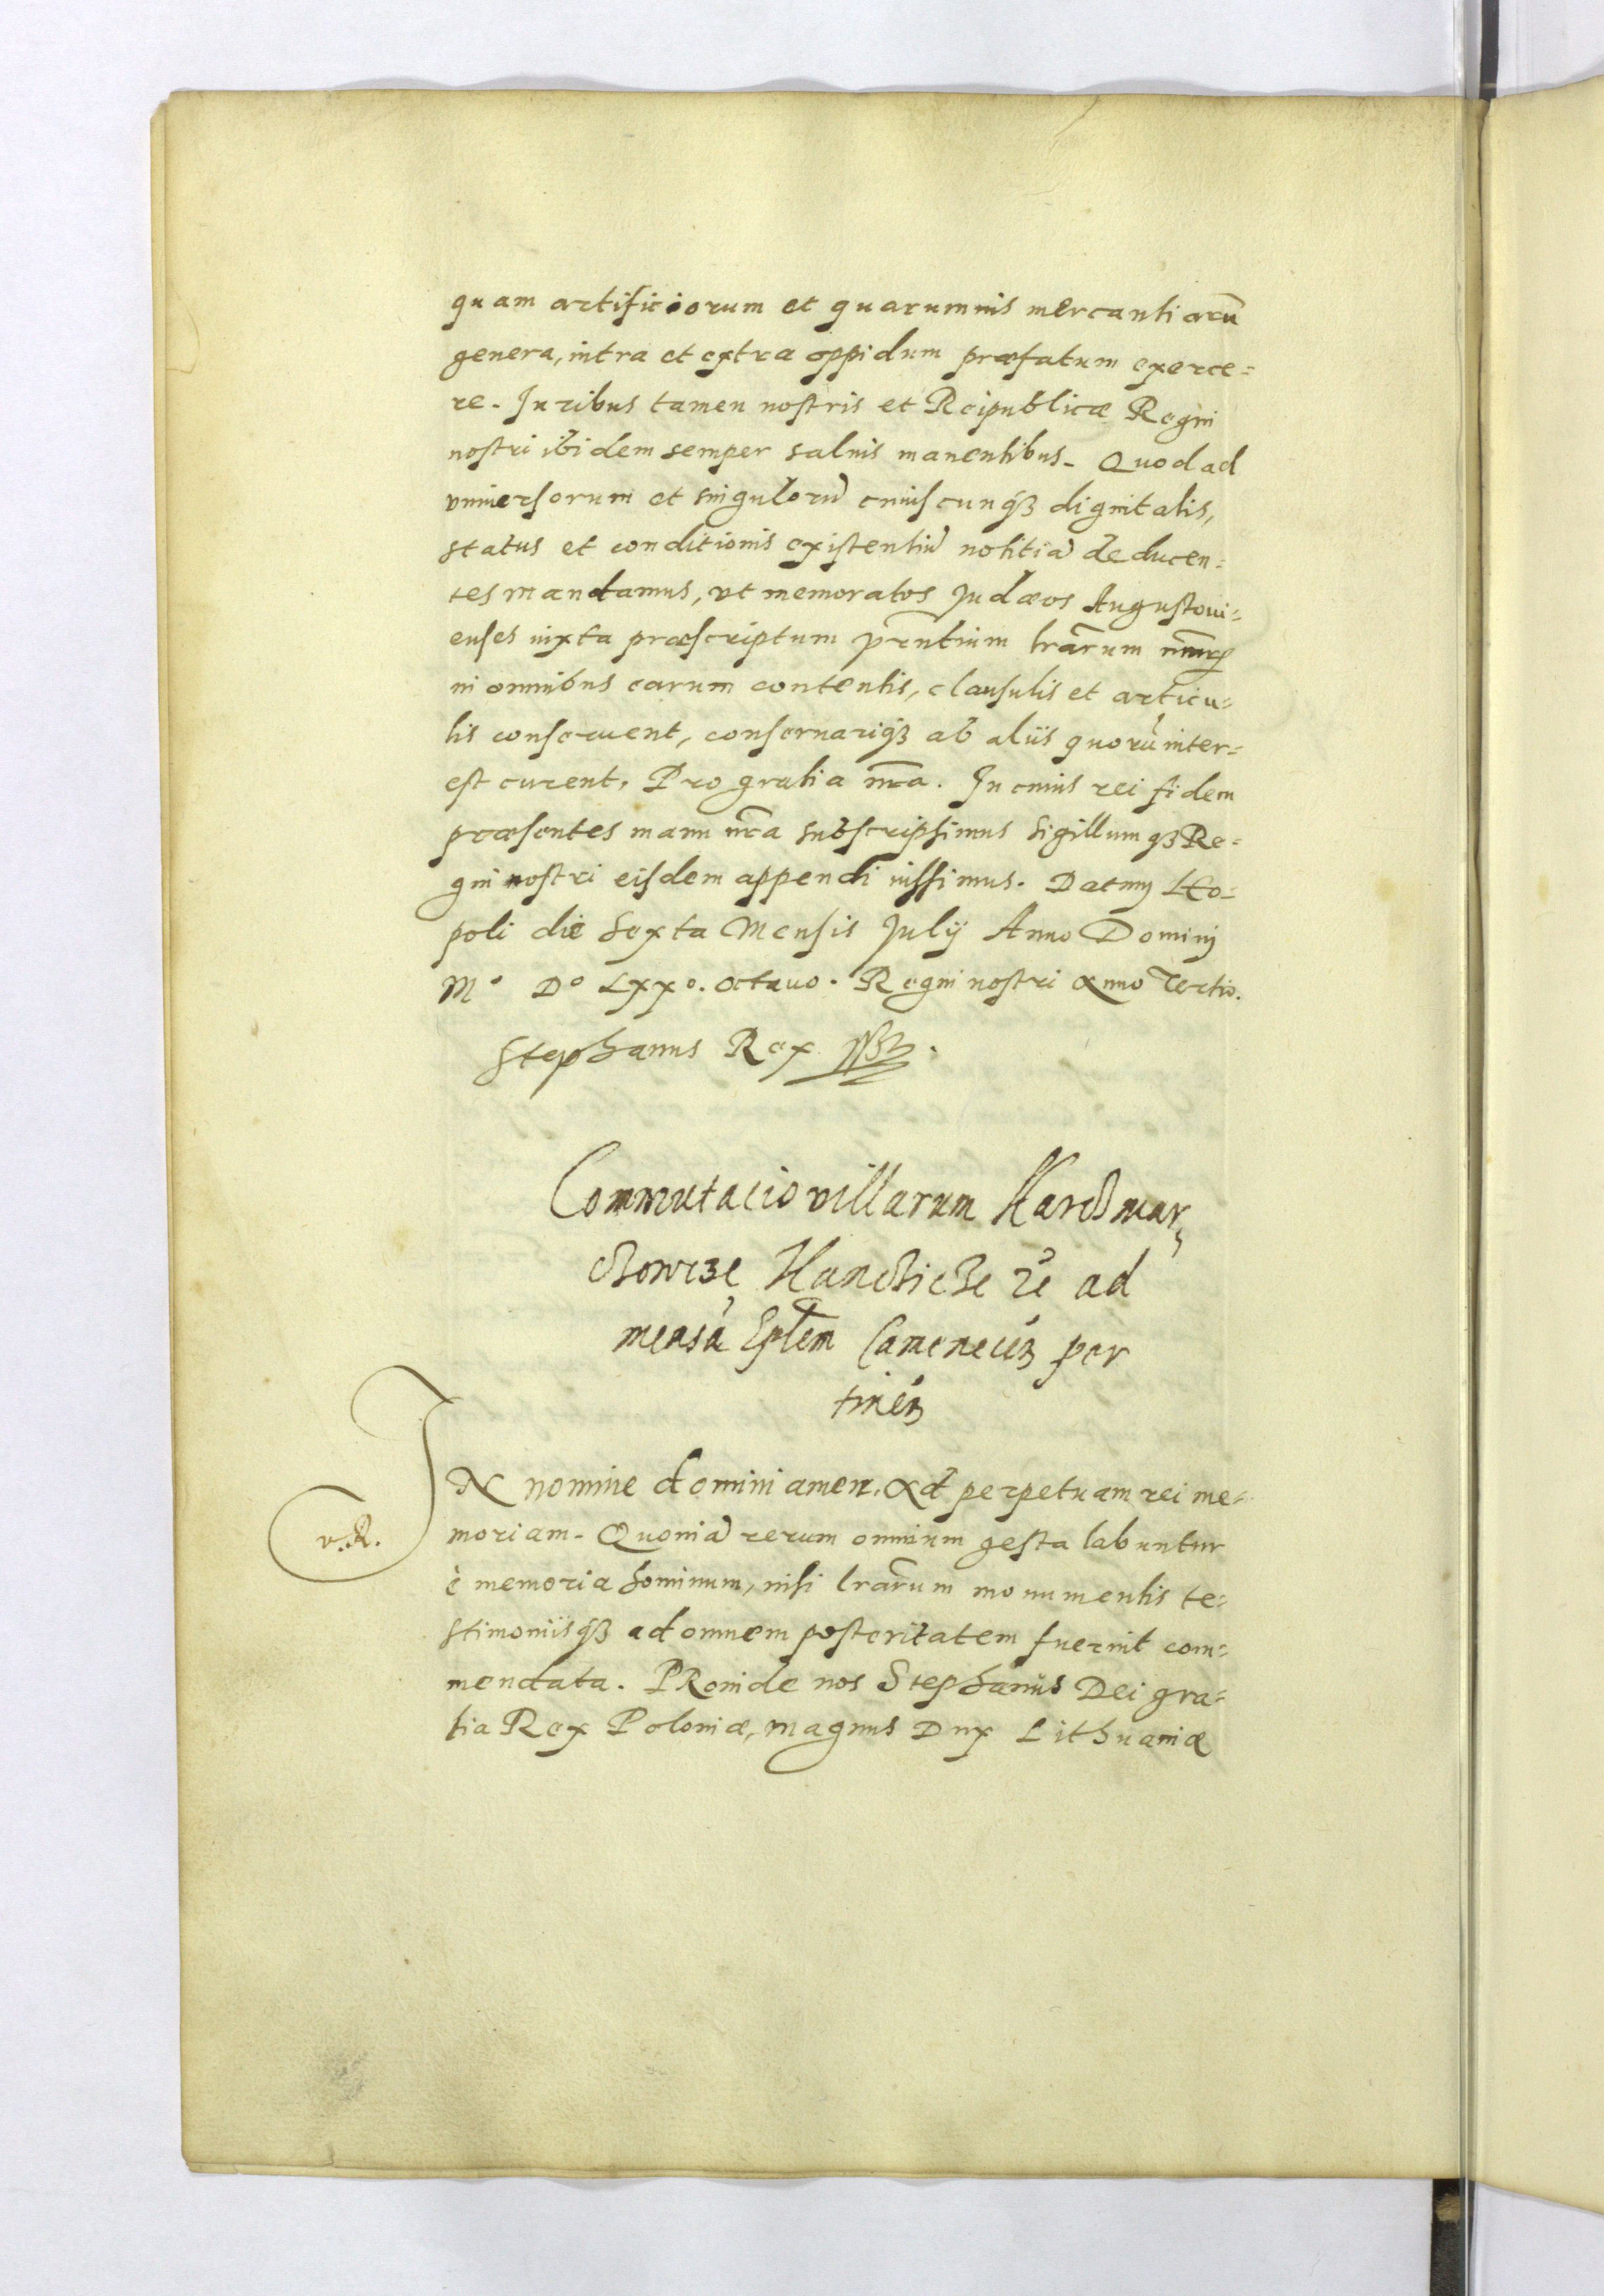 quam artificiorum et quarumuis mercantiarũ
genera, intra et extra oppidum præfatum exerce=
re. Juribus tamen nostris et Reipublicæ Regni
nostri ibidem semper saluis manentibus. Quod ad
vniuersorum et singulorũ cuiuscunqꝫ dignitatis,
status et conditionis existentiũ notitiã deducen=
tes mandamus, vt memoratos Judæos Augustoui=
enses iuxta præscriptum pr̃ntium lrãrum nr̃arum
in omnibus earum contentis, clausulis et articu=
lis conseruent, conseruariqꝫ ab aliis quorũ inter=
est curent. Pro gratia nr̃a. In cuius rei fidem
præsentes manu nr̃a subscripsimus sigillumqꝫ Re=
gni nostri eisdem appendi iussimus. Datum Leo=
poli die sexta Mensis Julij Anno Domini
Mº Dº Lxxº. octauo. Regni nostri anno Tertio.
Stephanus Rex
Commutacio villarum Karchmar
chowcze Hanchicze ad
mensã Ep̃lem Camenecẽn per
tinẽn
IN nomine domini amen. Ad perpetuam rei me=
moriam. Quoniã rerum omnium gesta labuntur
è memoria hominum, nisi lrãrum monumentis te=
stimoniisqꝫ ad omnem posteritatem fuerint com=
mendata. PRoinde nos Stephanus Dei gra=
tia Rex Poloniæ, magnus Dux Lithuaniæ